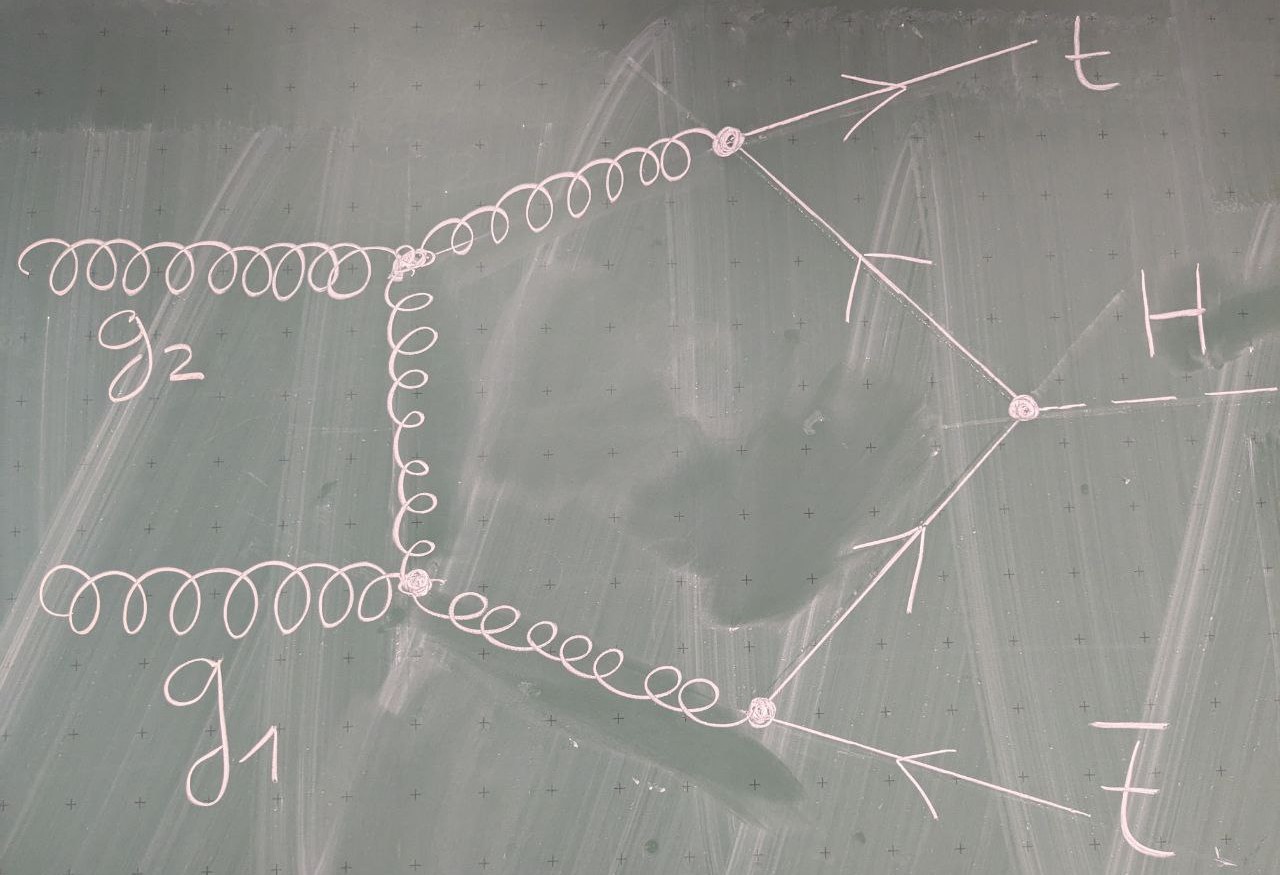 t
g2
H
g1
t̅